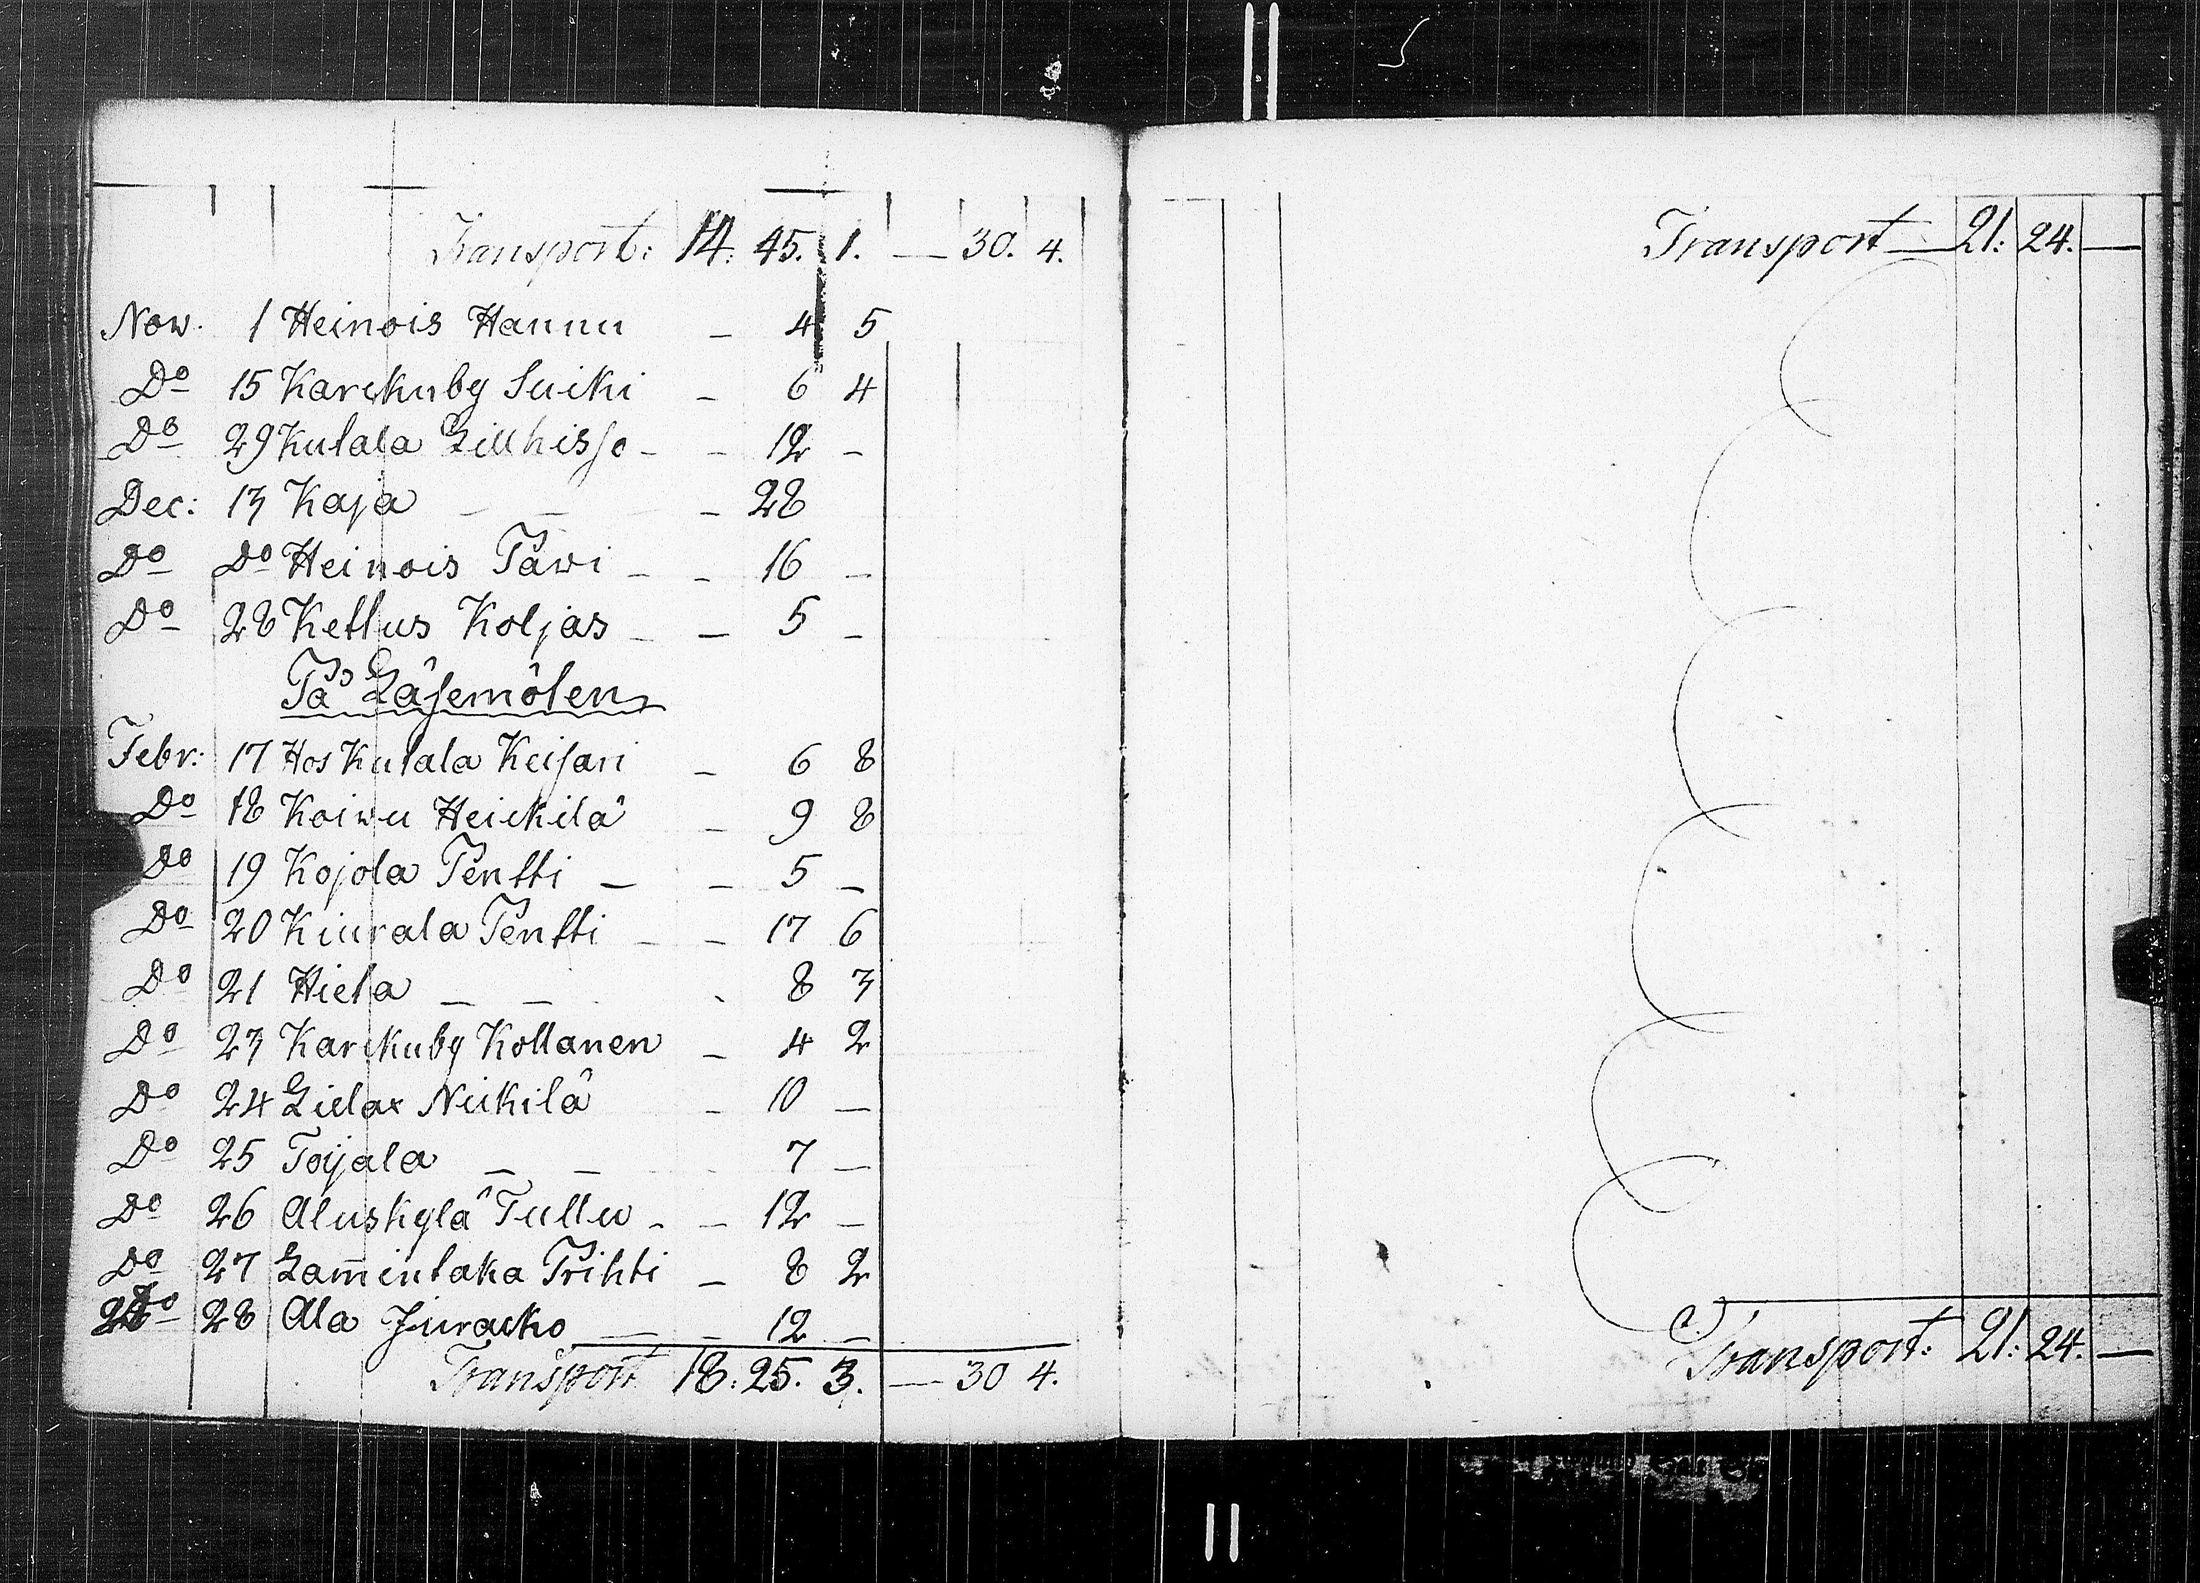 Transport: 14. 45. 1. — 30. 4.
Now. 1 Heinois Hannu — 4 5
Do 15 Karckuby Suiki — 6 4
Do 29 Kutala Lillhisso — — 12 —
Dec: 13 Kaja — — — 28
Do Do Heinois Päwi — — 16 —
Do 28 Kettus Koljas — — 5 —
På Läsemöten
Febr: 17 Hos Kutala Keisari — 6 8
Do 18 Koiwu Heickilä — 9 8
Do 19 Kojola Pentti — — 5 —
Do 20 Kiurala Pentti — — 17 6
Do 21 Hieta — — 8 3
Do 23 Karckuby Kollanen — 4 2
Do 24 Lielax Neikilä — 10 —
Do 25 Toijala — — 7 —
Do 26 Aluskylä Tullu — — 12 —
Do 27 Lam̄intaka Prihti — 8 2
Do 28 Ala Juracko — — 12 —
Transport 18. 25. 3. — 30 4.
Transport — 21: 24. —
Transport: 21: 24. —